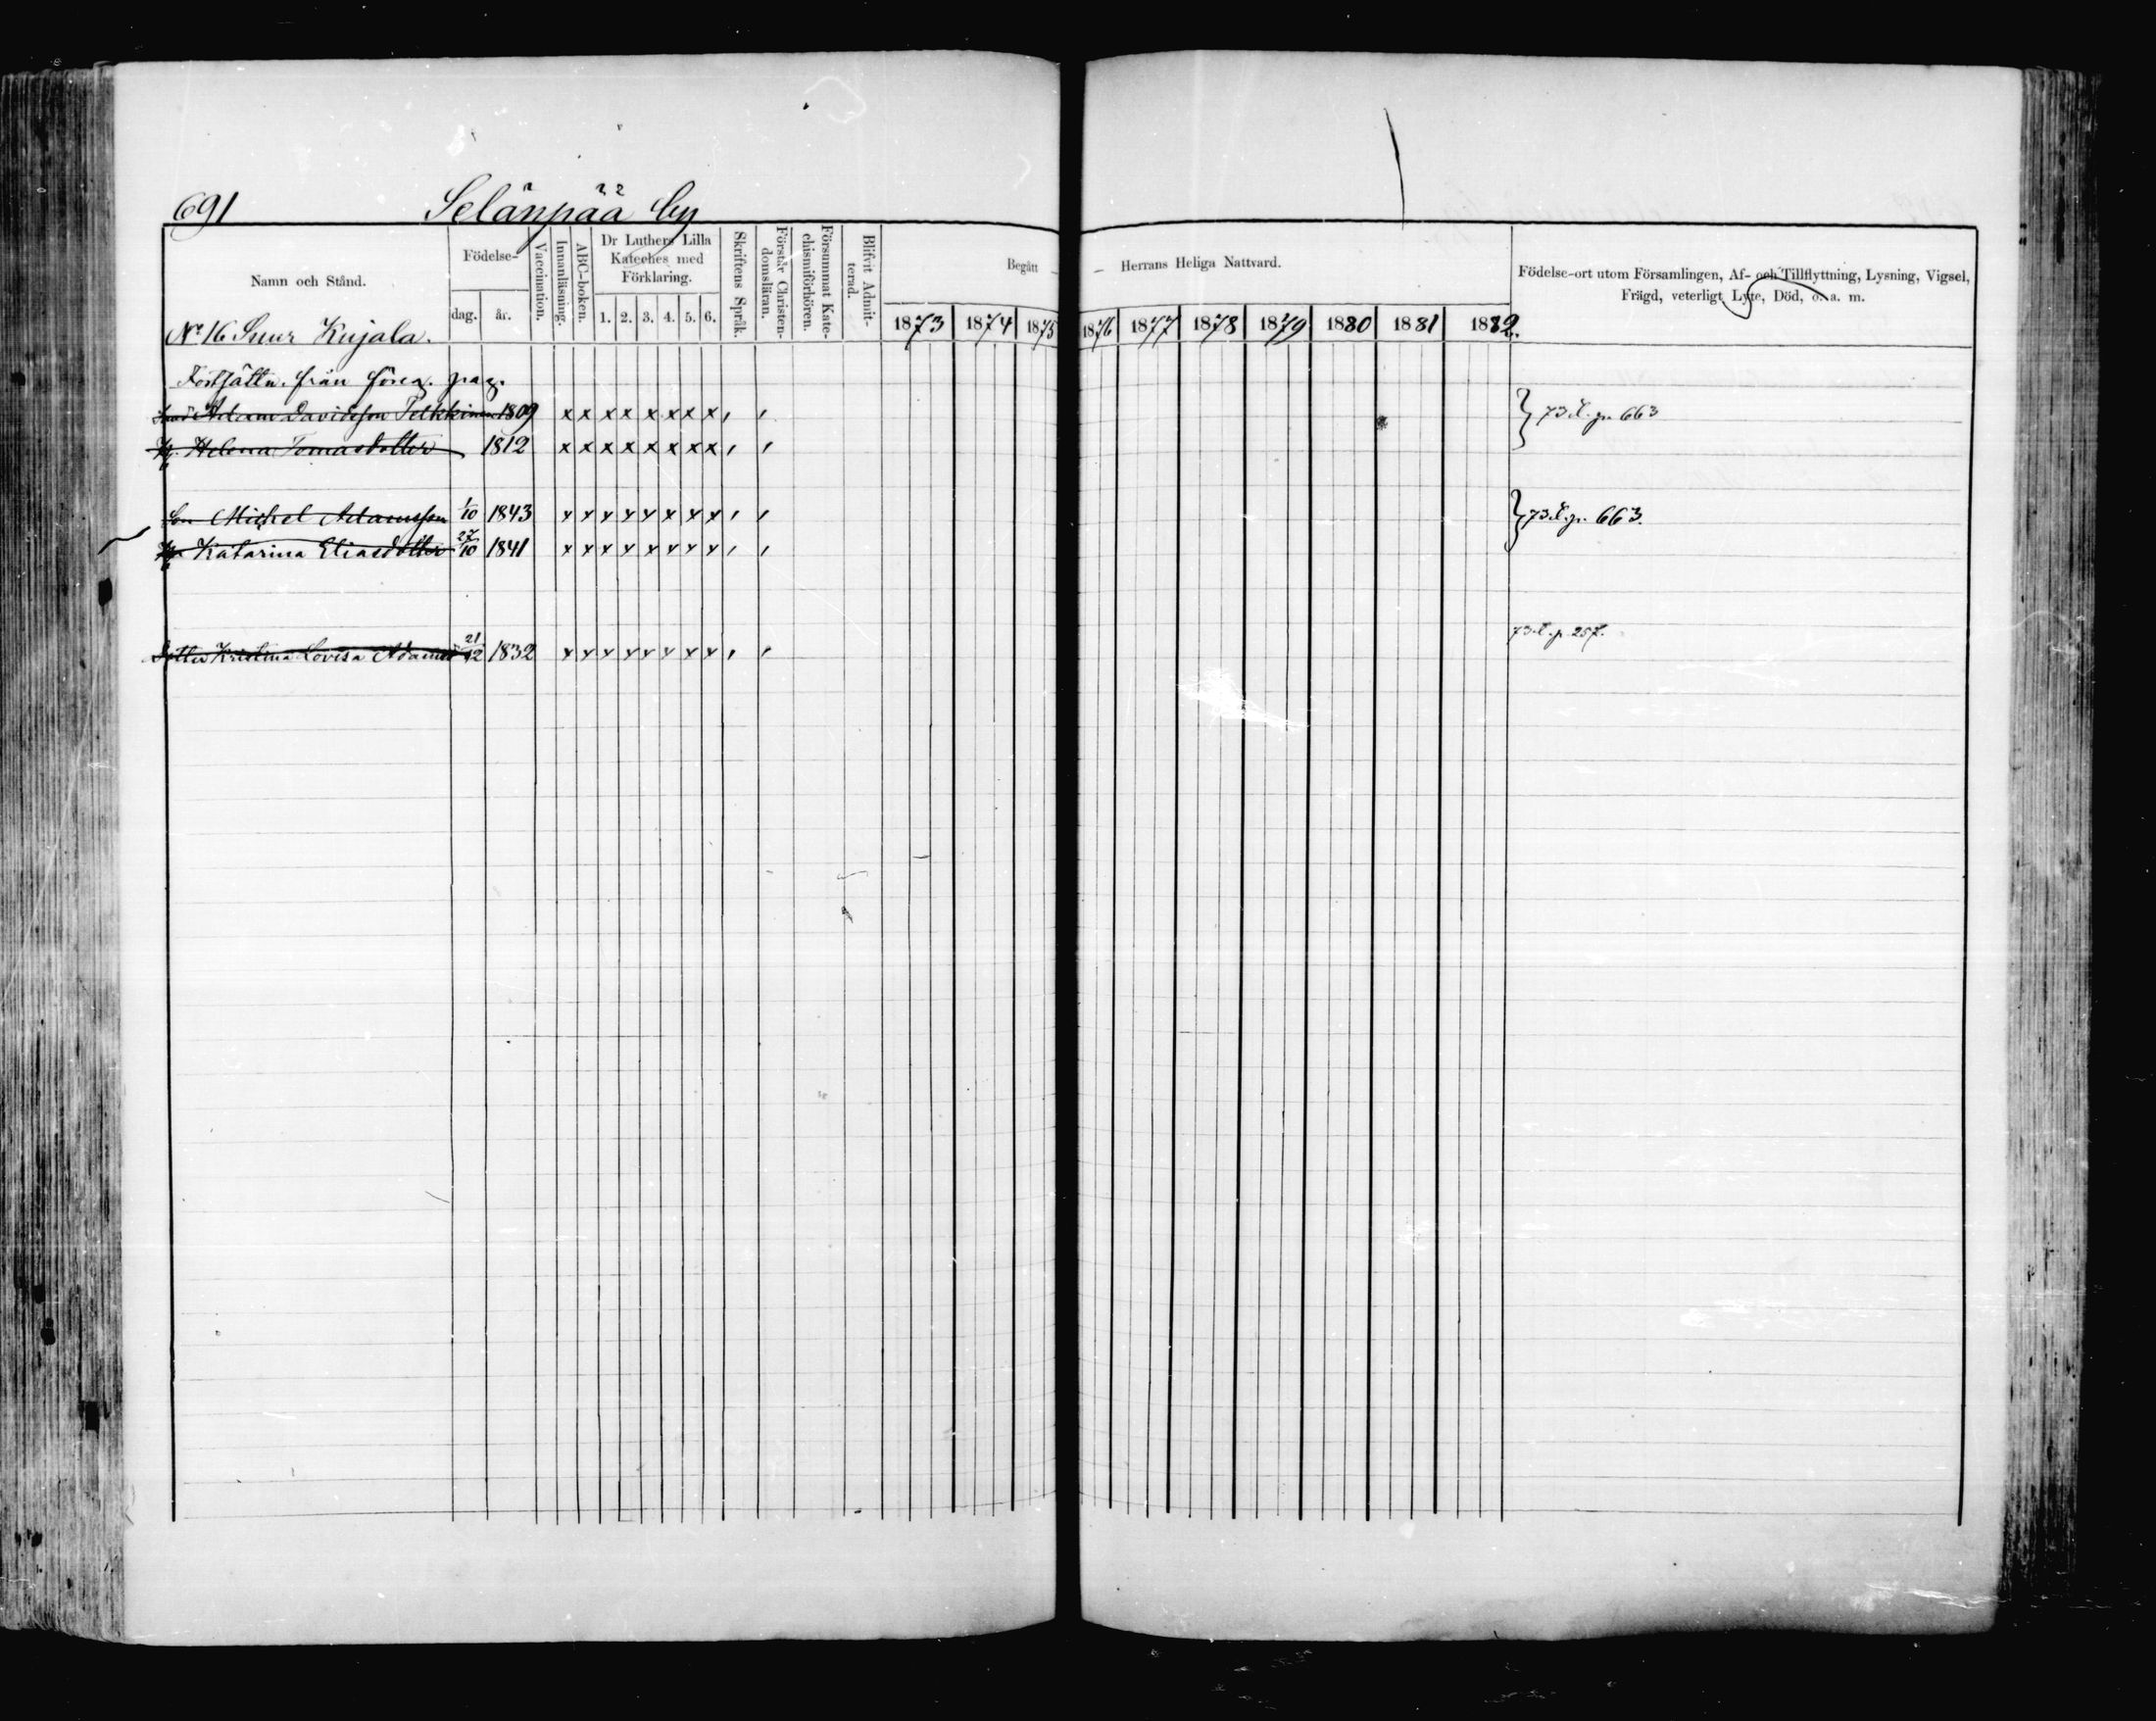 691 Selänpää by
Namn och Stånd. Födelse- dag. år. Vaccination. Innanläsning. ABC-boken. Dr Luthers Lilla Kateches med Förklaring. 1. 2. 3. 4. 5. 6. Skriftens Språk. Förstår Christendomsläran. Försummat Katechismiförhören. Blifvit Admitterad. Begått Herrans Heliga Nattvard. Födelse-ort utom Församlingen, Af- och Tillflyttning, Lysning, Vigsel, Frägd, veterligt Lyte, Död, o. a. m.
1873 1874 1875 1876 1877 1878 1879 1880 1881 1882.
No 16 Suur Kujala.
Fortsättn. från föreg. pag.
Adam Davidsson Pelkkinen 1809 x x x x x x x x , , } 73.l. p. 663
H. Helena Tomasdotter 1812 x x x x x x x x , ,
Son Michel Adamsson 1/10 1843 x x x x x x x x , , } 73.l.p. 663.
H. Katarina Eliasdotter 27/10 1841 x x x x x x x x , ,
73.l.p. 257.
Dotter Kristina Lovisa Adamsd 21/12 1832 x x x x x x x x , ,